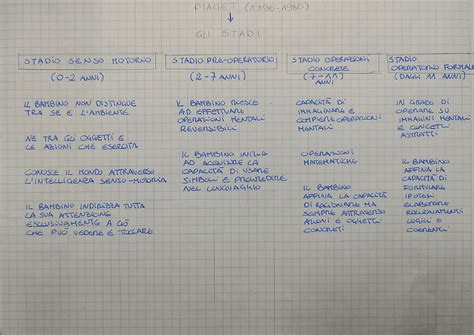 PIAGET (1896-1980)
GLI STADI
STADIO SENSO MOTORIO
(0-2 ANNI)
IL BAMBINO NON DISTINGUE
TRA SE E L'AMBIENTE
NE TRA GLI OGGETTI E
LE AZIONI CHE ESERCITA
CONOSCE IL MONDO ATTRAVERSO
L'INTELLIGENZA SENSO-MOTORIA
IL BAMBINO INDIRIZZA TUTTA
LA SUA ATTENZIONE
ESCLUSIVAMENTE A CIÒ
CHE PUÒ VEDERE E TOCCARE
STADIO PRE-OPERATORIO
(2-7 ANNI)
IL BAMBINO RIESCE
AD EFFETTUARE
OPERAZIONI MENTALI
REVERSIBILI
IL BAMBINO INIZIA
AD ACQUISIRE LA
CAPACITÀ DI USARE
SIMBOLI E PROGREDIRE
NEL LINGUAGGIO
STADIO OPERAZIONI
CONCRETE
(7-11 ANNI)
CAPACITÀ DI
IMMAGINARE E
COMPIERE OPERAZIONI
MENTALI
OPERAZIONI
MATEMATICHE
IL BAMBINO
AFFINA LA CAPACITÀ
DI RAGIONARE MA
SEMPRE ATTRAVERSO
AZIONI E OGGETTI
CONCRETI
STADIO
OPERATORIO FORMALE
(DAGLI 11 ANNI)
IN GRADO DI
OPERARE SU
IMMAGINI MENTALI
E CONCETTI
ASTRATTI
IL BAMBINO
AFFINA LA
CAPACITÀ DI
FORMULARE
IPOTESI
ELABORARE
RAGIONAMENTI
LOGICI E
COERENTI